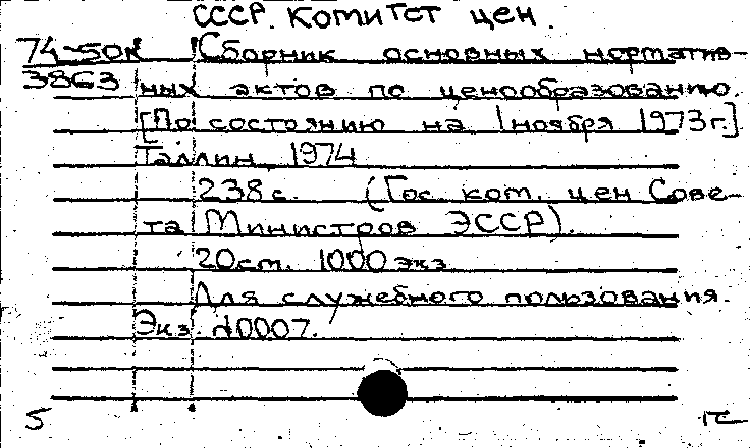 СССР. Комитет цен.
74-50к Сборник основных норматив-
3863 ных актов по ценообразованию.
[По состоянию на 1 ноября 1973г.]
Таллин, 1974
238 с. (Гос. ком. цен Сове-
та Министров ЭССР).
20 ст. 1000 экз.
Для служебного пользования.
Экз. №0007.
5